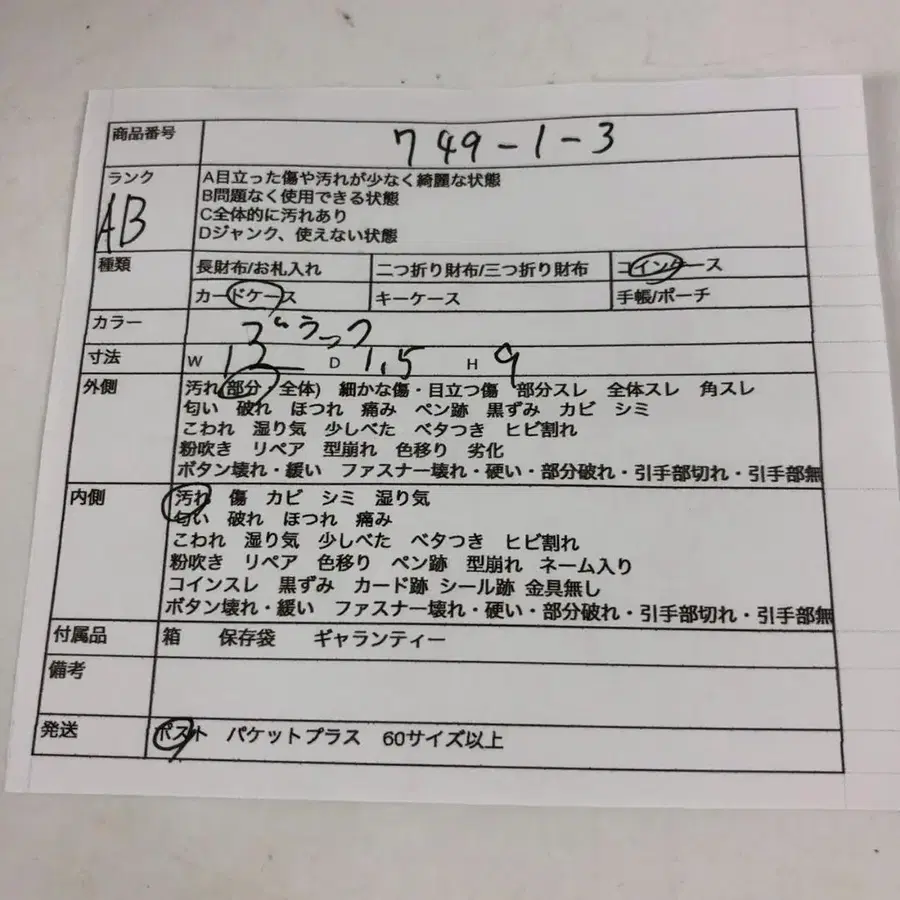 商品番号 749-1-3
ランク AB
A目立った傷や汚れが少なく綺麗な状態
B問題なく使用できる状態
C全体的に汚れあり
Dジャンク、使えない状態
種類 長財布/お札入れ 二つ折り財布/三つ折り財布 コインケース
カードケース キーケース 手帳/ポーチ
カラー ブラック
寸法 W 12 D 1.5 H 9
外側 汚れ(部分 全体) 細かな傷・目立つ傷 部分スレ 全体スレ 角スレ
匂い 破れ ほつれ 痛み ペン跡 黒ずみ カビ シミ
こわれ 湿り気 少しべた ベタつき ヒビ割れ
粉吹き リペア 型崩れ 色移り 劣化
ボタン壊れ・緩い ファスナー壊れ・硬い・部分破れ・引手部切れ・引手部無
内側 汚れ 傷 カビ シミ 湿り気
匂い 破れ ほつれ 痛み
こわれ 湿り気 少しべた ベタつき ヒビ割れ
粉吹き リペア 色移り ペン跡 型崩れ ネーム入り
コインスレ 黒ずみ カード跡 シール跡 金具無し
ボタン壊れ・緩い ファスナー壊れ・硬い・部分破れ・引手部切れ・引手部無
付属品 箱 保存袋 ギャランティー
備考
発送 ポスト パケットプラス 60サイズ以上